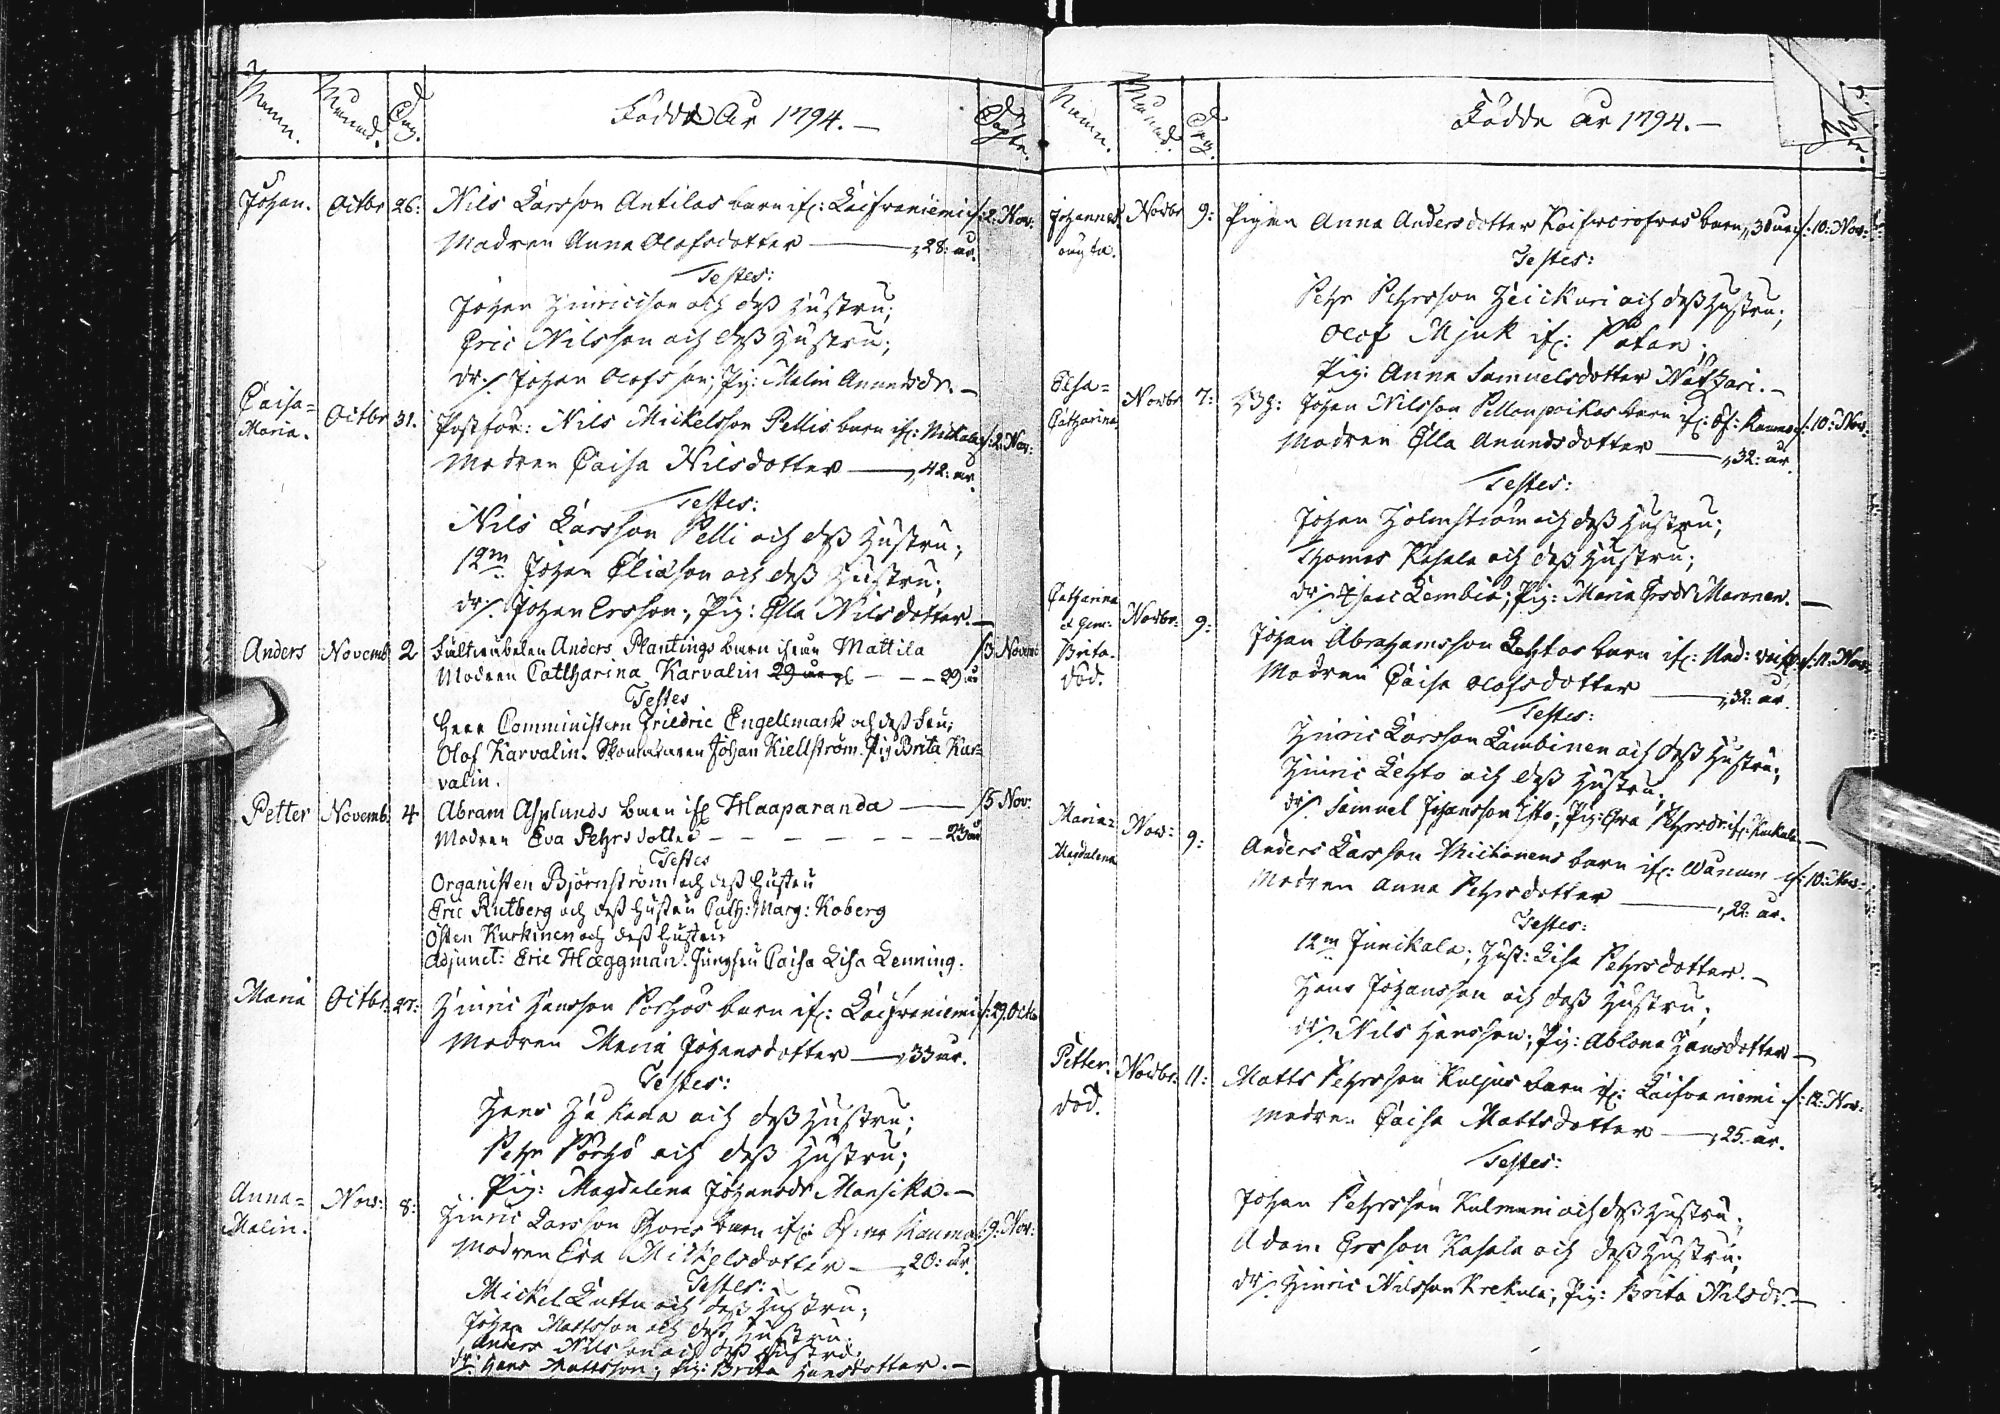 Namn. Månad. Dag. Födde År 1794. — Döpte.
Johan. Octbr 26: Nils Larsson Antilas barn if: Laifvaniemi /:2: Nov:
Madren Anna Olofsdotter — 28: år.
Testes:
Johan Hinricsson och deß Hustru;
Eric Nilsson och deß Hustru;
dr: Johan Olofsson; Pig: Malin Anundsdr. —
Caisa=
Maria. Octbr 31. Postför: Nils Mickelsson Pellis barn if: Nickala /:2: Nov:
Madren Caisa Nilsdotter — 42: år.
Testes:
Nils Larsson Pelli och deß Hustru;
12m Johan Eliasson och deß Hustru;
dr: Johan Ersson; Pig: Ella Nilsdotter. —
Anders Novemb 2 Anders Plantings barn ifrån Mattila /3 Novem:
Modren Cattharina Karvalin 29 år — — 29. år
Testes
Herr Comministern Friedric Engellmark och deß Fru;
Olof Karvalin. Skomakaren Johan Kiellström. Pig Brita Kar=
valin.
Petter Novemb: 4 Abram Asplunds barn if Haaparanda — /5 Nov:
Modren Eva Pehrsdotter — — — — — 23 år
Testes
Organisten Björnström och deß hustru
Eric Rutberg och deß hustru Cath: Marg: Koberg
Östen Kurkinen och deß hustru
Adjunct: Eric Hæggman. Jungfru Caisa Lisa Lenning.
Maria Octbr: 27: Hinric Hansson Porhos barn if: Laifvaniemi /:29. Octb
Madren Maria Johansdotter — 33 år.
Testes:
Hans Hakana och deß Hustru;
Pehr Pörhö och deß Hustru;
Pig: Magdalena Johansdr Mansika. —
Anna=
Malin. Nov: 8: Hinric Larsson barn if: Kauma /:9: Nov:
Madren Eva Mickelsdotter — 20: år.
Testes:
Mickel Luttu och deß Hustru;
Johan Mattsson och deß Hustru;
Anders Nilsson och deß Hustru;
dr: Hans Mattsson; Pig: Brita Hansdotter. —
Namn. Månad. Dag. Födde År 1794. —
Johannes
oägta. Novbr 9: Pigan Anna Andersdotter barn, 30 år /:10: Nov:
Testes:
Pehr Pehrsson Heickuri och deß Hustru;
Olof Mjuk if: Patan;
Pig: Anna Samuelsdotter Nathari. —
Elsa=
Catharina Novbr 7: Johan Nilsson Pellonpoikas barn if: Öf: Kauma /:10: Nov:
Madren Ella Anundsdotter — 32: år.
Testes:
Johan Holmström och deß Hustru;
Thomas Kasala och deß Hustru;
dr: Isaac Lembiä; Pig: Maria Ersdr Maronen. —
Catharina
et Gem:
Brita.
död. Novbr: 9: Johan Abrahamsson Lehtos barn if: Ned: /:11: Nov:
Madren Caisa Olofsdotter — 32: år.
Testes:
Hinric Larsson Lambinen och deß Hustru;
Hinric Lehto och deß Hustru;
dr: Samuel Johansson; Pig: Eva Pehrsdr if: Kuckala. —
Maria=
Magdalena Nov: 9: Anders Larsson barn if: /:10: Nov:
Madren Anna Pehrsdotter — 22: år.
Testes:
12m Junikala; Hust: Lisa Pehrsdotter. —
Hans Johansson och deß Hustru;
dr: Nils Hansson; Pig: Ablona Hansdotter —
Petter.
död. Novbr. 11: Matts Pehrsson Kuljus barn if: Laifvaniemi /:12: Nov:
Madren Caisa Mattsdotter — 25. år.
Testes:
Johan Pehrsson Kulmuni och deß Hustru;
Adam Ersson Kasala och deß Hustru;
dr: Hinric Nilsson Krekula; Pig: Brita Nilsdr. —